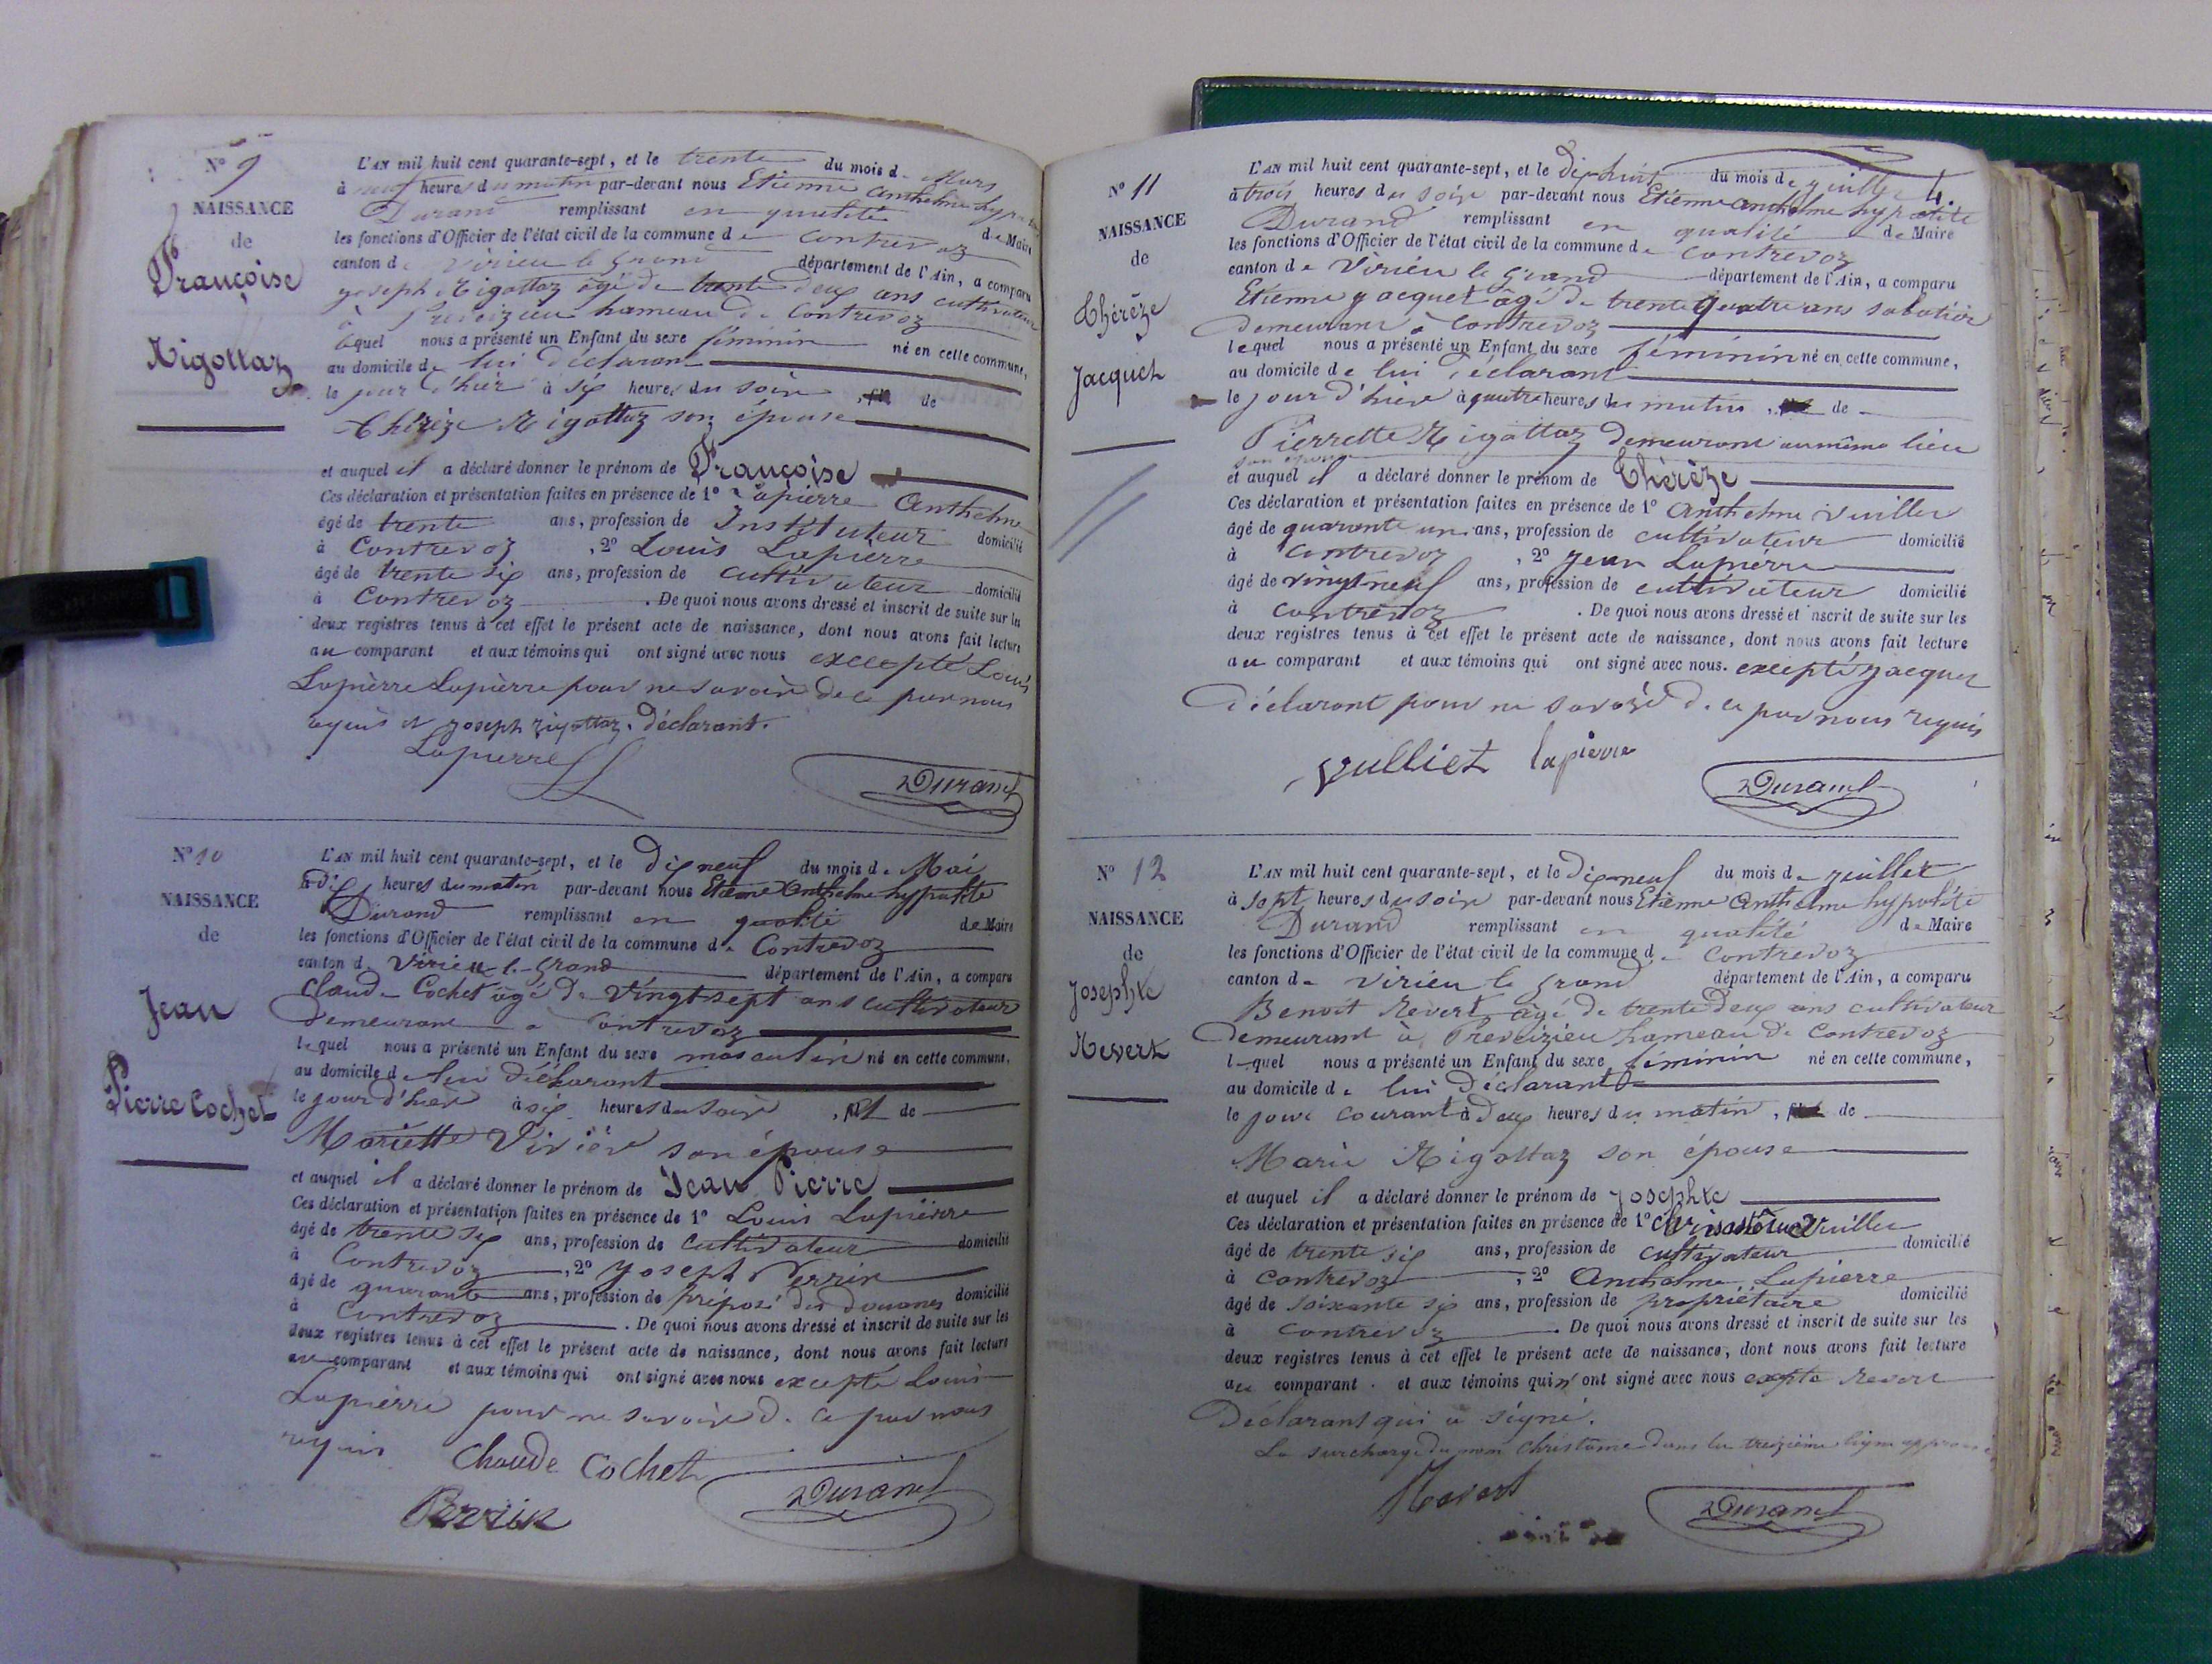 N° 9
NAISSANCE
de
Françoise
Rigottaz
L'AN mil huit cent quarante-sept, et le trente du mois de Mars
à neuf heures du matin par-devant nous Etienne Anthelme hypolite
Durand remplissant en qualité de Maire
les fonctions d'Officier de l'état civil de la commune de Contrevoz
canton de Virieu le Grand département de l'Ain, a comparu
joseph Rigottaz âgé de trente deux ans cultivateur
à Preveizieu hameau de Contrevoz
lequel nous a présenté un Enfant du sexe féminin né en cette commune,
au domicile de lui déclarant
le jour d'hier à six heures du soir, de
Thérèze Rigottaz son épouse
et auquel il a déclaré donner le prénom de Françoise
Ces déclaration et présentation faites en présence de 1° Lapierre Anthelme
âgé de trente ans, profession de Instituteur domicilié
à Contrevoz, 2° Louis Lapierre
âgé de trente six ans, profession de cultivateur domicilié
à Contrevoz. De quoi nous avons dressé et inscrit de suite sur les
deux registres tenus à cet effet le présent acte de naissance, dont nous avons fait lecture
au comparant et aux témoins qui ont signé avec nous excepté Louis
Lapierre Lapierre pour ne savoir de ce par nous
requis et joseph rigottaz. déclarant.
Lapierre
Durand
N° 10
NAISSANCE
de
Jean
Pierre Cochet
L'AN mil huit cent quarante-sept, et le dix neuf du mois de Mai
à dix heures du matin par-devant nous Etienne Anthelme hypolite
Durand remplissant en qualité de Maire
les fonctions d'Officier de l'état civil de la commune de Contrevoz
canton de Virieu le Grand département de l'Ain, a comparu
Claude Cochet âgé de vingt sept ans cultivateur
demeurant à Contrevoz
lequel nous a présenté un Enfant du sexe masculin né en cette commune,
au domicile de lui déclarant
le jour d'hier à six heures du soir, de
Mariette Vivier son épouse
et auquel il a déclaré donner le prénom de Jean Pierre
Ces déclaration et présentation faites en présence de 1° Louis Lapierre
âgé de trente six ans, profession de cultivateur domicilié
à Contrevoz, 2° joseph Perrin
âgé de quarante ans, profession de préposé des douanes domicilié
à Contrevoz. De quoi nous avons dressé et inscrit de suite sur les
deux registres tenus à cet effet le présent acte de naissance, dont nous avons fait lecture
au comparant et aux témoins qui ont signé avec nous excepté Louis
Lapierre pour ne savoir de ce par nous
requis
Claude Cochet
Perrin
Durand
4.
N° 11
NAISSANCE
de
Thérèze
Jacquet
L'AN mil huit cent quarante-sept, et le dix-huit du mois de juillet
à trois heures du soir par-devant nous Etienne Anthelme hypolite
Durand remplissant en qualité de Maire
les fonctions d'Officier de l'état civil de la commune de Contrevoz
canton de Virieu le Grand département de l'Ain, a comparu
Etienne jacquet âgé de trente quatre ans sabotier
demeurant à Contrevoz
lequel nous a présenté un Enfant du sexe féminin né en cette commune,
au domicile de lui déclarant
le jour d'hier à quatre heures du matin, de
Pierrette Rigottaz demeurant au même lieu
son épouse
et auquel il a déclaré donner le prénom de Thérèze
Ces déclaration et présentation faites en présence de 1° Anthelme Vuillier
âgé de quarante un ans, profession de cultivateur domicilié
à Contrevoz, 2° jean Lapierre
âgé de vingt neuf ans, profession de cultivateur domicilié
à Contrevoz. De quoi nous avons dressé et inscrit de suite sur les
deux registres tenus à cet effet le présent acte de naissance, dont nous avons fait lecture
au comparant et aux témoins qui ont signé avec nous. excepté jacquet
déclarant pour ne savoir de ce par nous requis
vulliet lapierre
Durand
N° 12
NAISSANCE
de
Josephte
Revert
L'AN mil huit cent quarante-sept, et le dix neuf du mois de juillet
à sept heures du soir par-devant nous Etienne Anthelme hypolite
Durand remplissant en qualité de Maire
les fonctions d'Officier de l'état civil de la commune de Contrevoz
canton de Virieu le Grand département de l'Ain, a comparu
Benoit Revert âgé de trente deux ans cultivateur
demeurant à Preveizieu hameau de Contrevoz
lequel nous a présenté un Enfant du sexe féminin né en cette commune,
au domicile de lui déclarant
le jour courant à deux heures du matin, de
Marie Rigottaz son épouse
et auquel il a déclaré donner le prénom de josephte
Ces déclaration et présentation faites en présence de 1° Vuillier
âgé de trente six ans, profession de cultivateur domicilié
à Contrevoz, 2° Anthelme Lapierre
âgé de soixante six ans, profession de propriétaire domicilié
à Contrevoz. De quoi nous avons dressé et inscrit de suite sur les
deux registres tenus à cet effet le présent acte de naissance, dont nous avons fait lecture
au comparant et aux témoins qui n'ont signé avec nous excepté Revert
Déclarant qui a signé.
La surcharge du nom Christome dans la treizième ligne approuvée
Revert
Durand